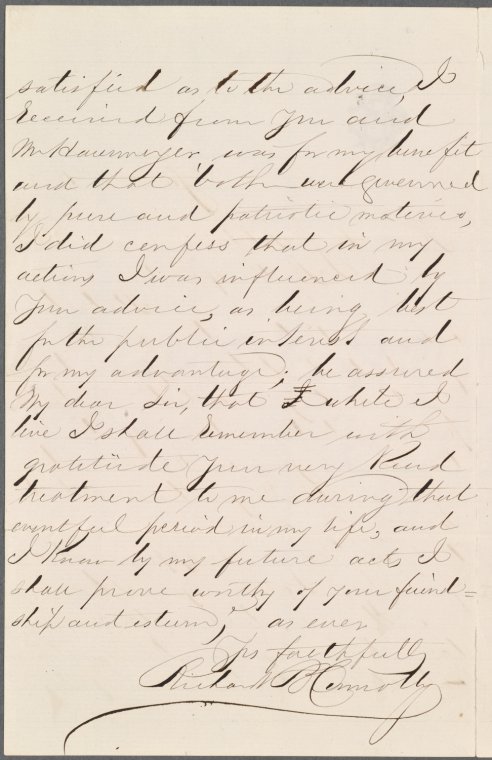 satisfied as to the advice, I
received from you and
Mr Havemeyer was for my benefit
and that both were governed
by pure and patriotic motives,
I did confess that in my
actions I was influenced by
your advice, as being best
for the public interest and
for my advantage; be assured
My dear Sir, that while I
live I shall remember with
gratitude your very kind
treatment to me during that
eventful period in my life, and
I know by my future acts I
shall prove worthy of your friend=
ship and esteem, as ever
Yrs faithfully
Richard B Connolly